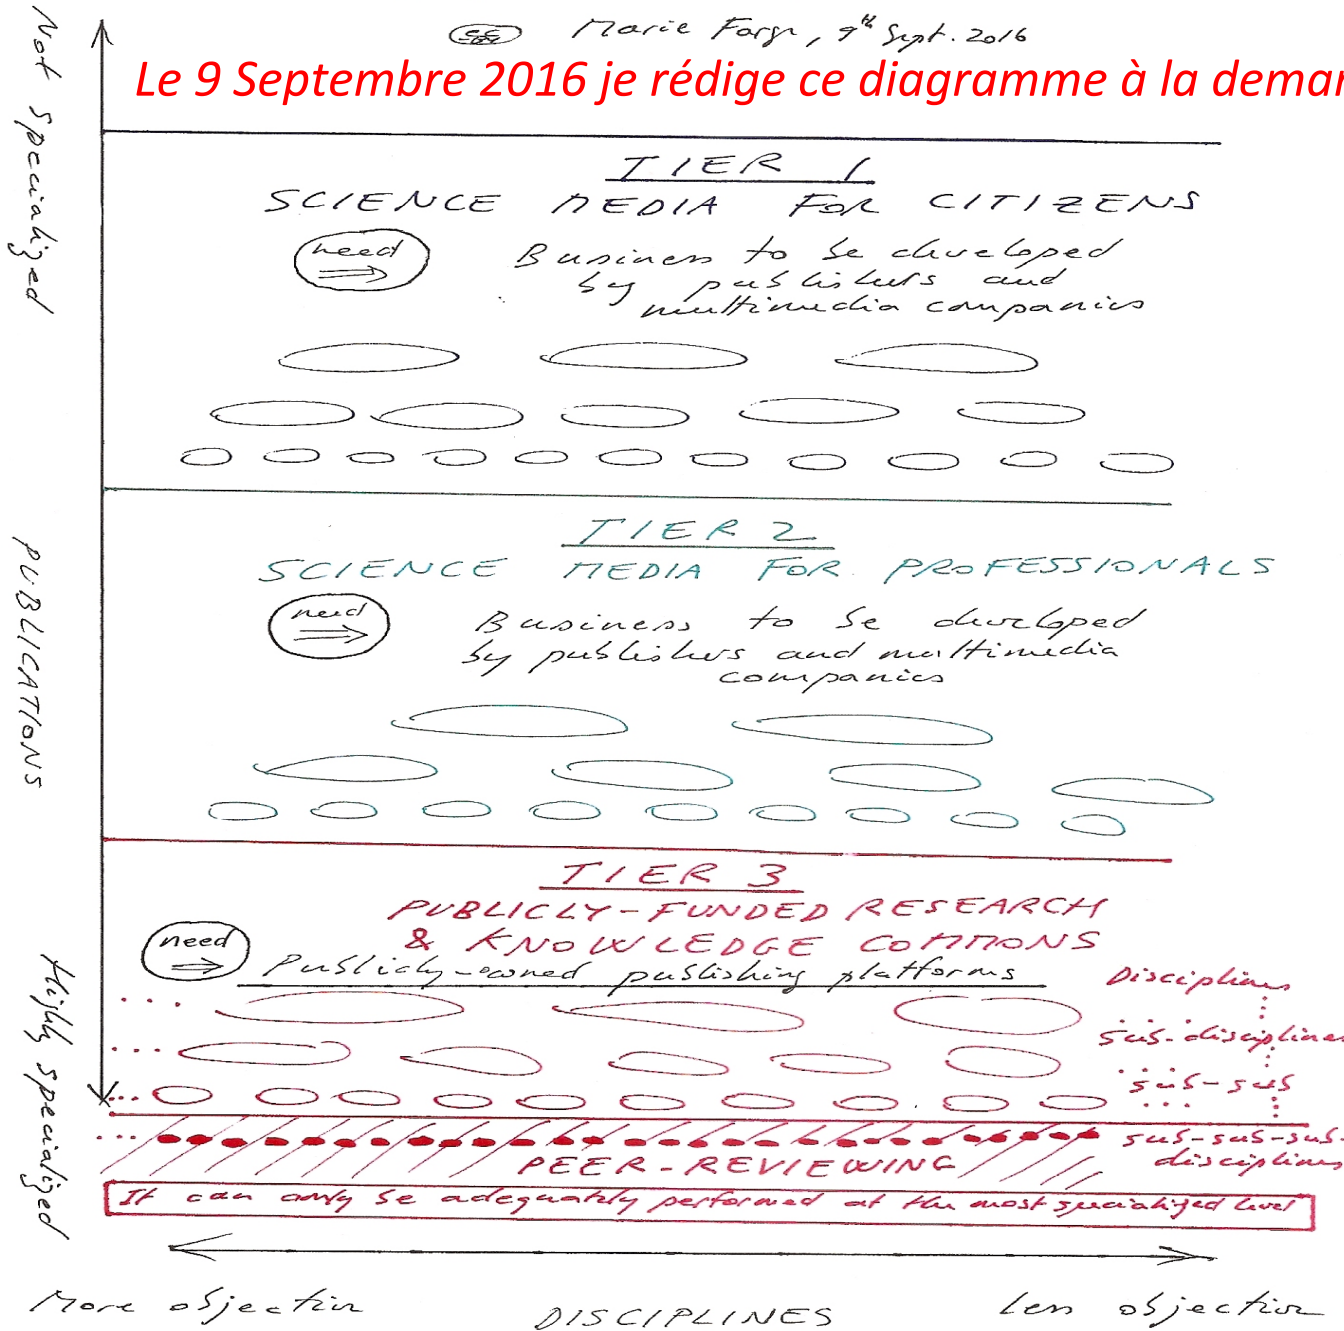 Marie Farge, 9th Sept. 2016
Le 9 Septembre 2016 je rédige ce diagramme à la deman
Not specialized
TIER 1
SCIENCE MEDIA FOR CITIZENS
need
Business to be developed
by publishers and
multimedia companies
PUBLICATIONS
TIER 2
SCIENCE MEDIA FOR PROFESSIONALS
need
Business to be developed
by publishers and multimedia
companies
TIER 3
PUBLICLY-FUNDED RESEARCH
& KNOWLEDGE COMMONS
need
Publicly-owned publishing platforms
Disciplines
sub-disciplines
sub-sub
sub-sub-sub-
disciplines
Highly specialized
PEER-REVIEWING
It can only be adequately performed at the most specialized level
More objective
DISCIPLINES
Less objective